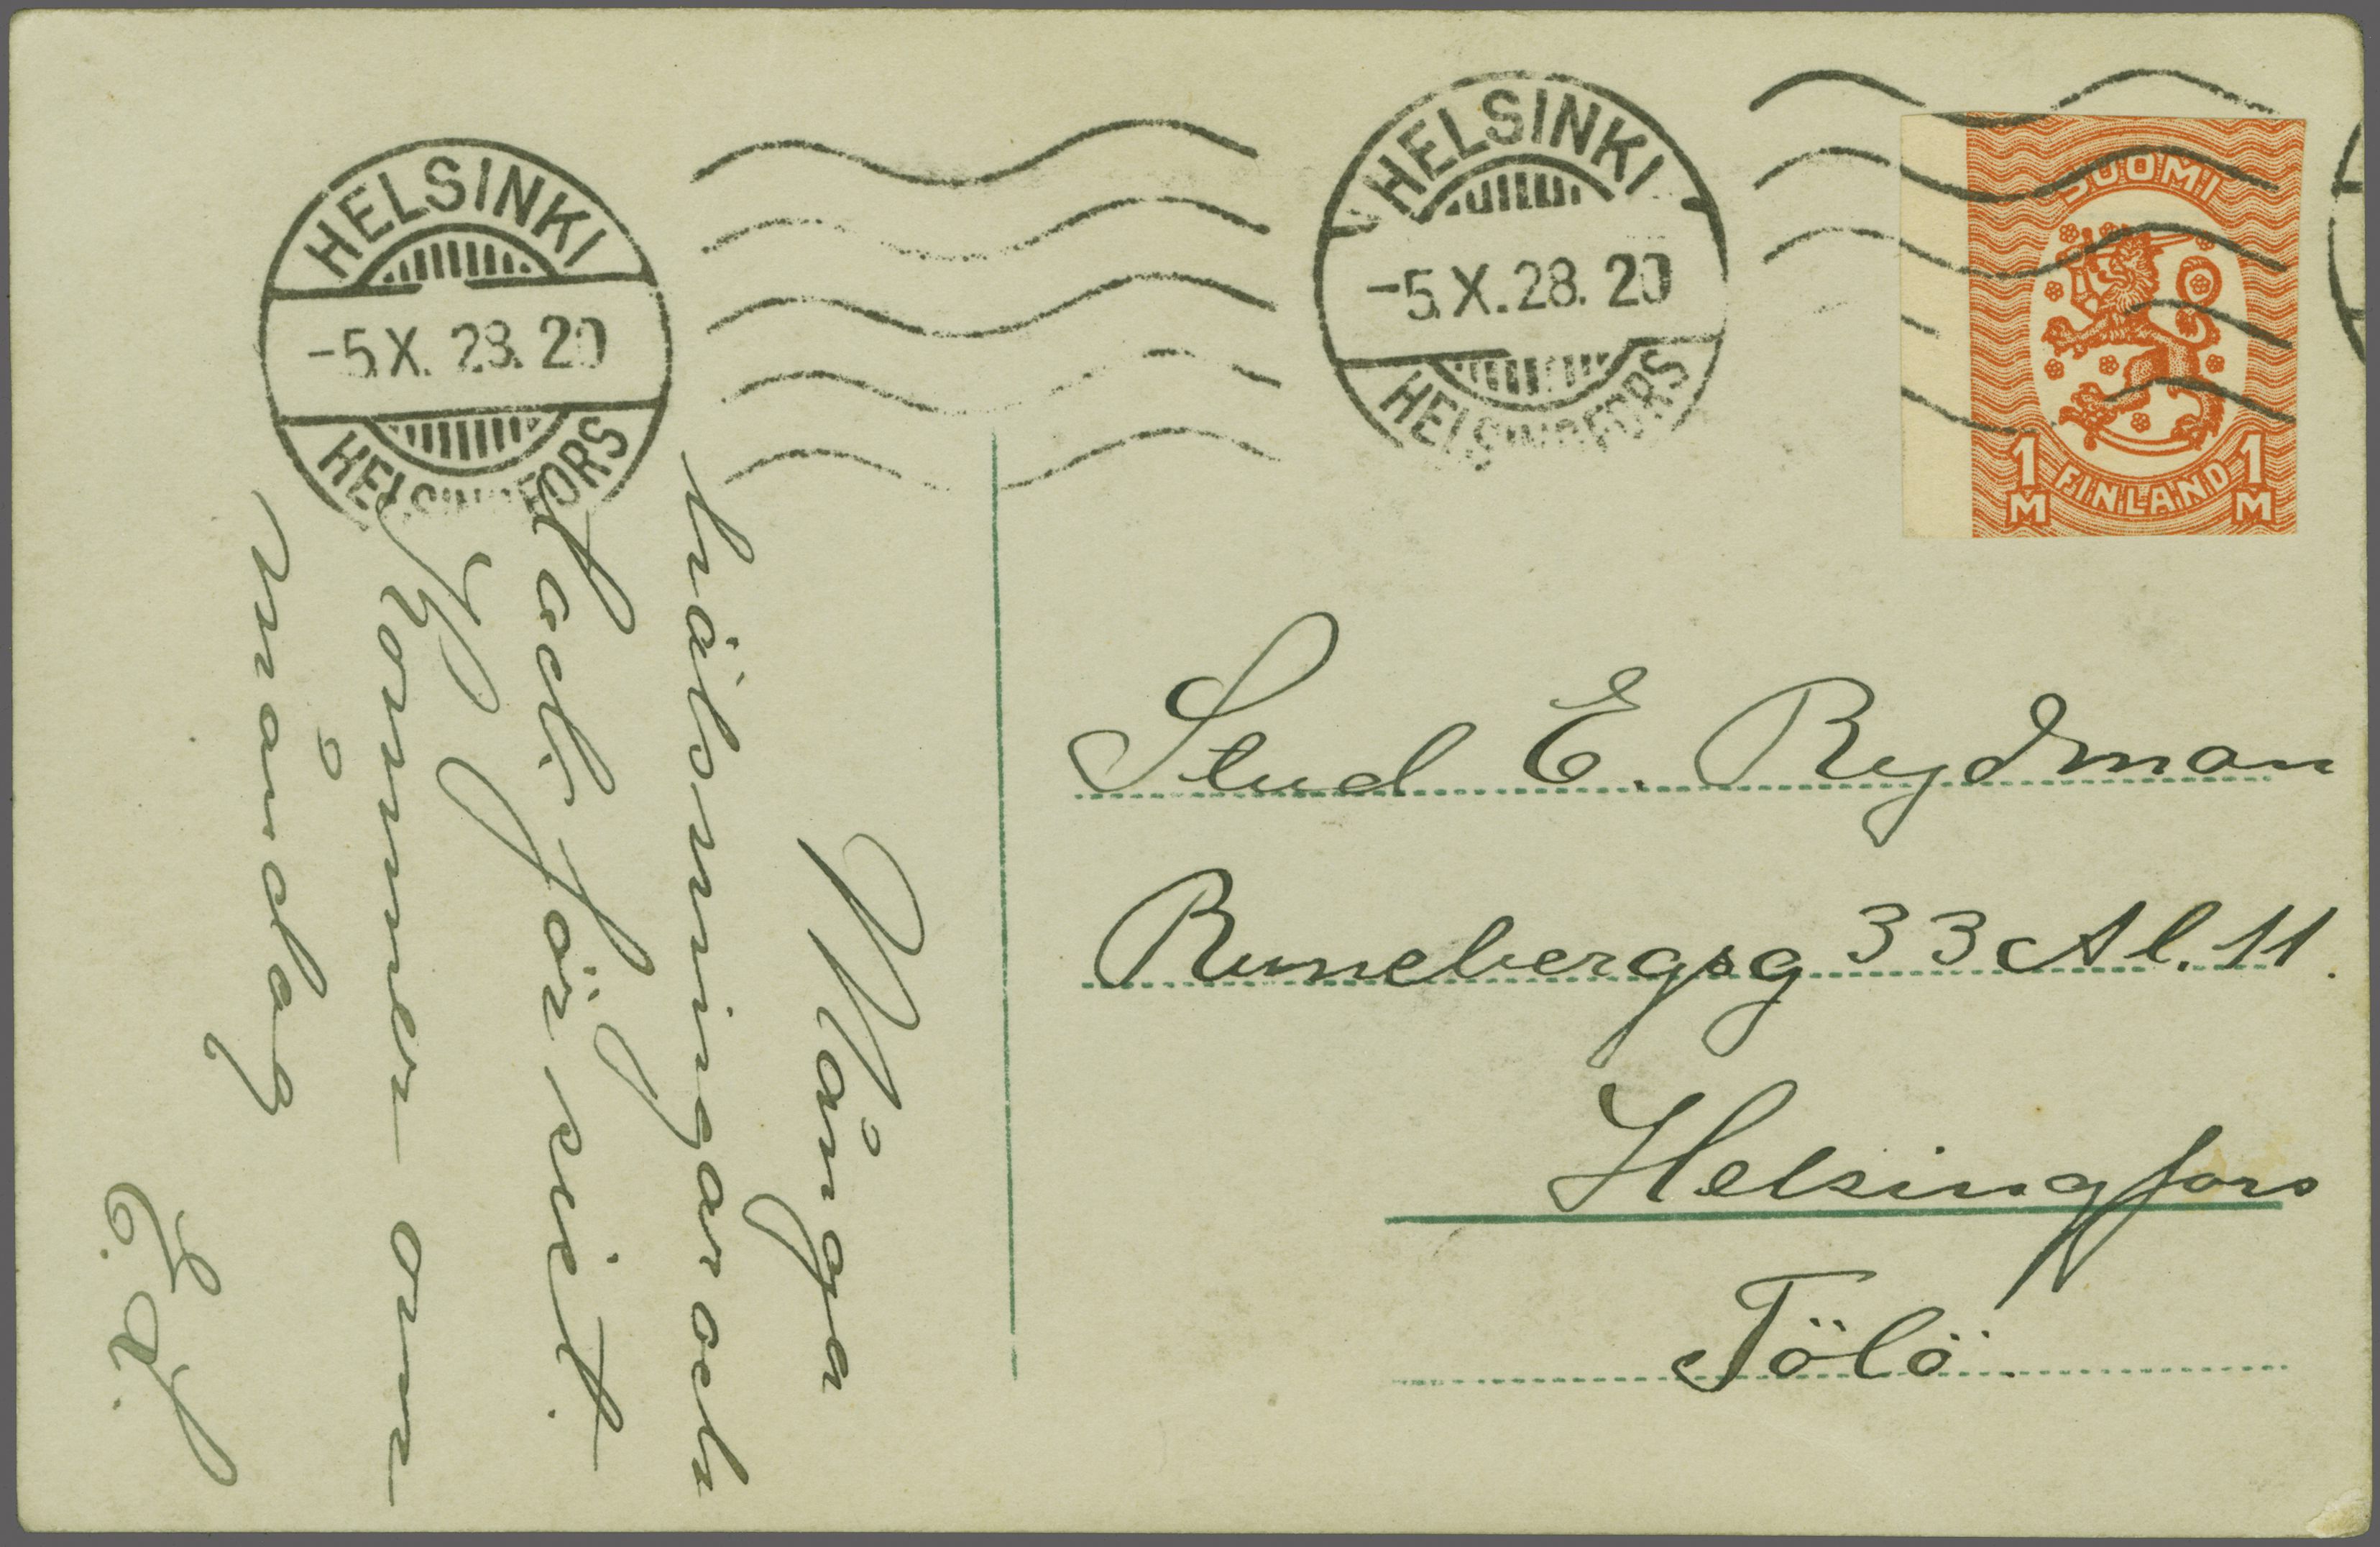 HELSINKI
-5.X.28.20
HELSINGFORS
HELSINKI
-5.X.28.20
HELSINGFORS
SUOMI
1 M FINLAND 1 M
Många
hälsningar och
tack för sist.
Kommer om
måndag
E.L.
Stud E. Rydman
Runebergsg 33 A l. 11.
Helsingfors
Tölö.